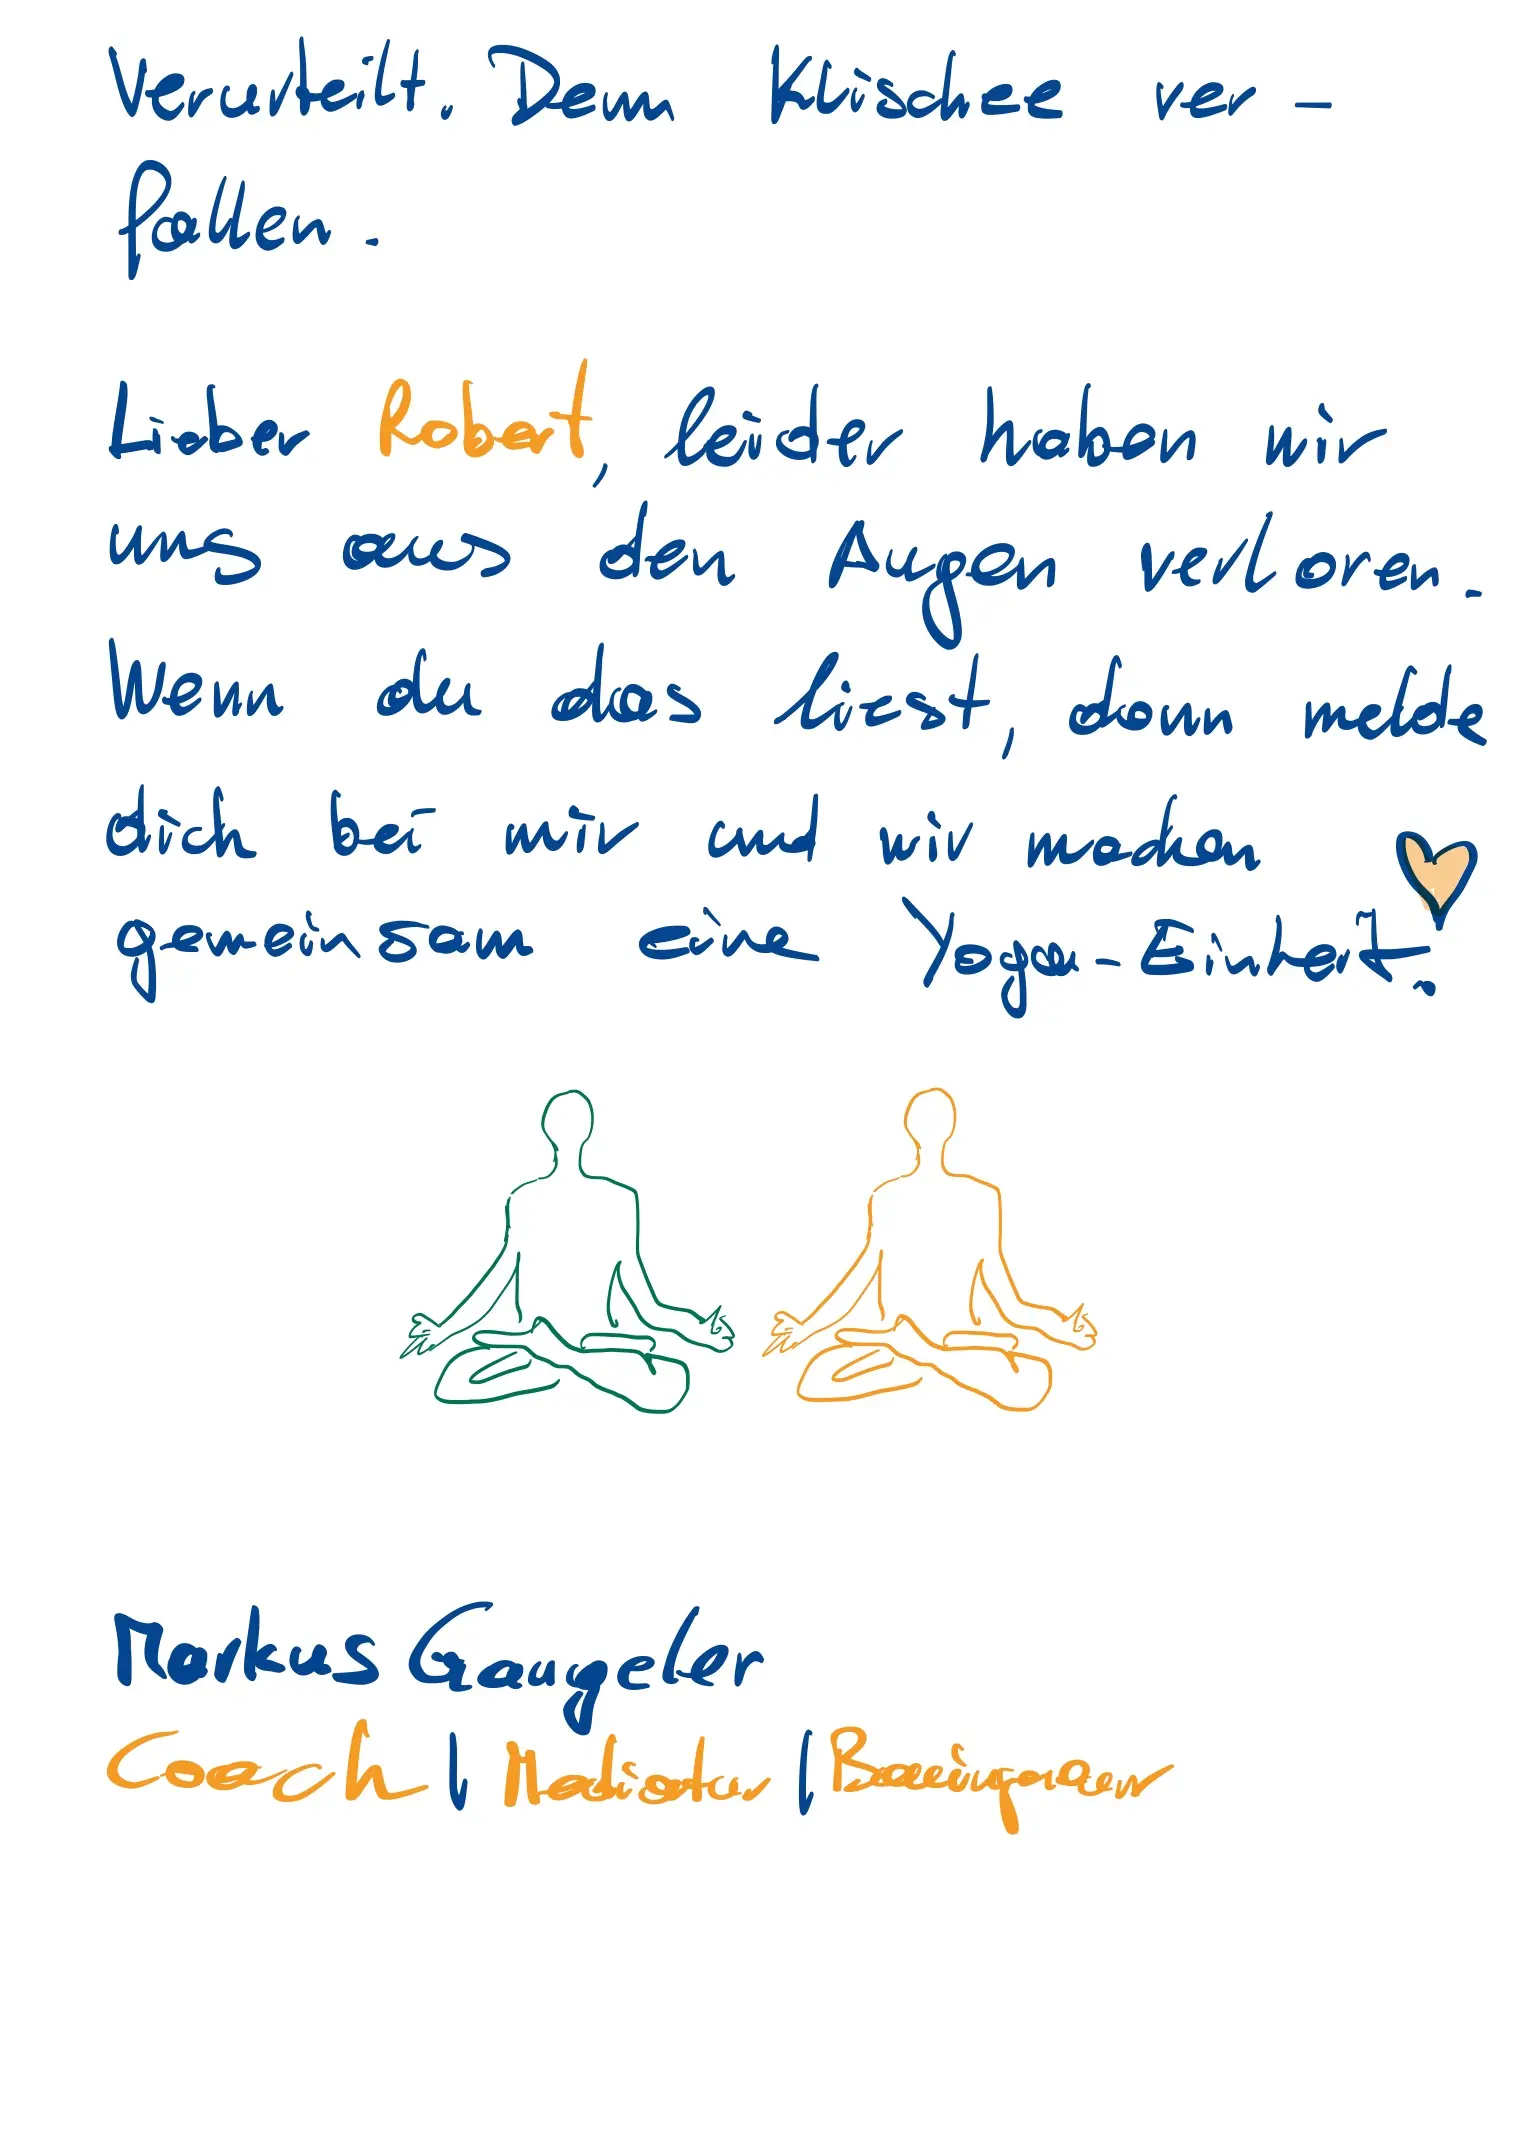 Verurteilt. Dem Klischee ver-
fallen.
Lieber Robert, leider haben wir
uns aus den Augen verloren.
Wenn du das liest, dann melde
dich bei mir und wir machen
gemeinsam eine Yoga-Einheit.
Markus Gaugeler
Coach | Mediator |